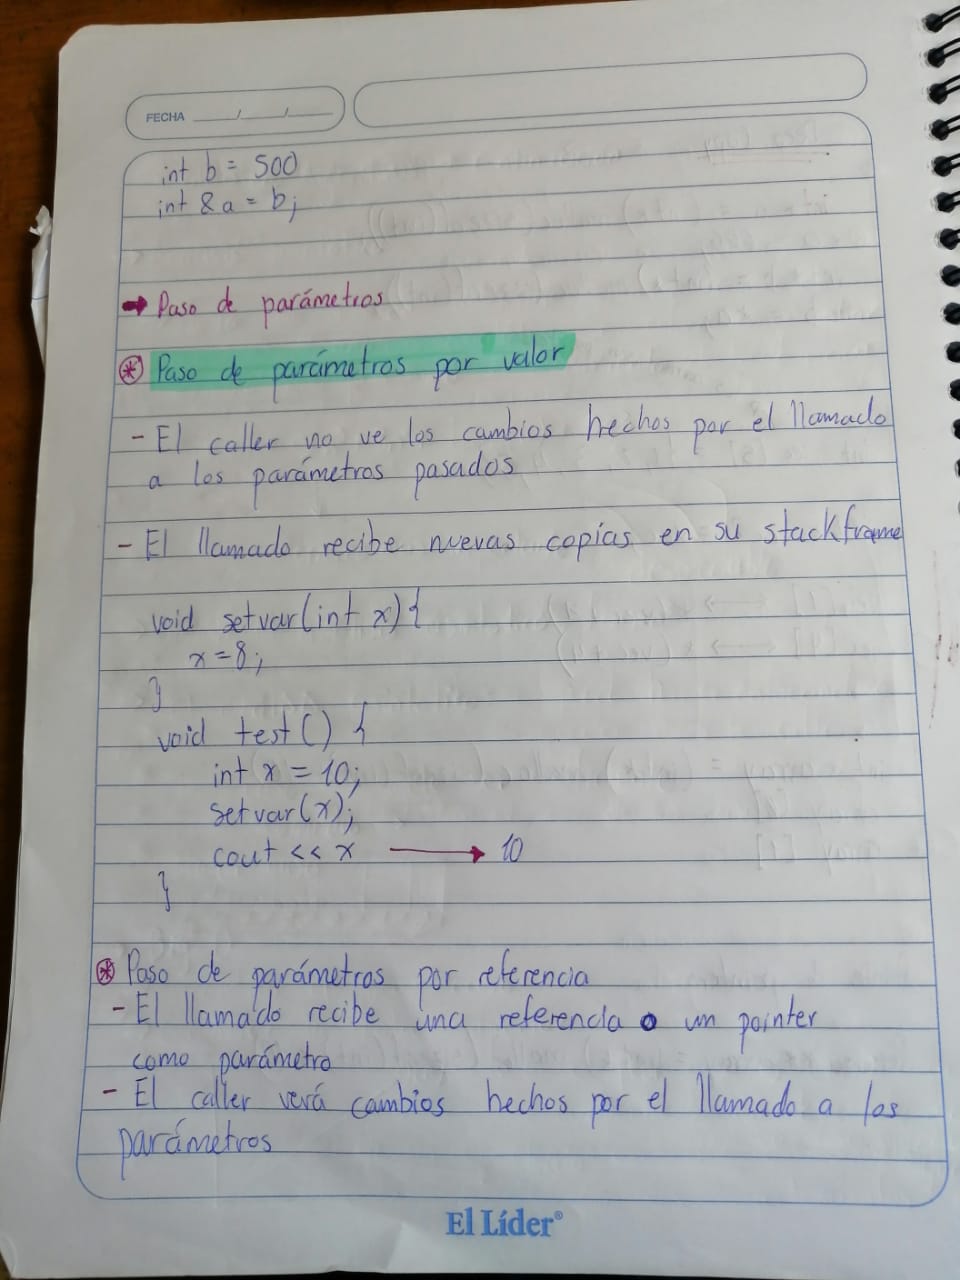 FECHA ___/___/___
int b = 500
int &a = b;
→ Paso de parámetros
* Paso de parámetros por valor
- El caller no ve los cambios hechos por el llamado
a los parámetros pasados
- El llamado recibe nuevas copias en su stackframe
void setvar(int x){
x=8;
}
void test() {
int x = 10;
setvar(x);
cout << x → 10
}
* Paso de parámetros por referencia
- El llamado recibe una referencia o un pointer
como parámetro
- El caller verá cambios hechos por el llamado a los
parámetros
El Líder®